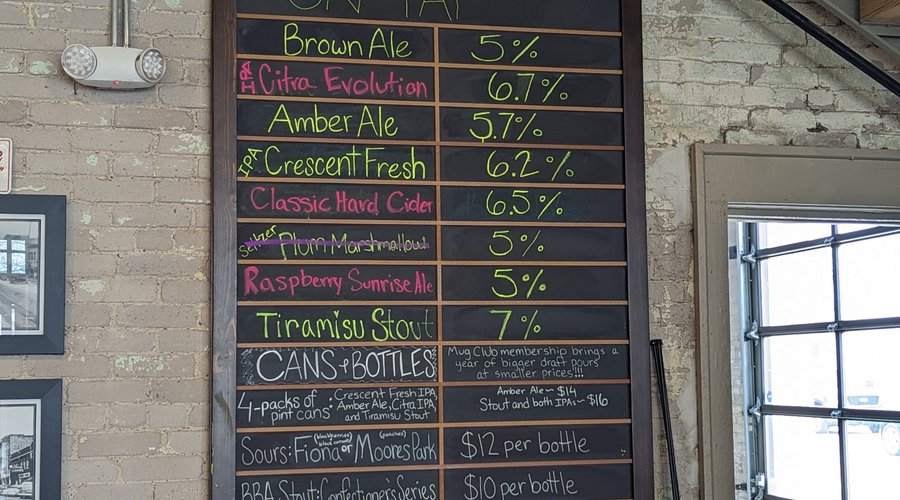 ON TAP
Brown Ale 5%
IPA Citra Evolution 6.7%
Amber Ale 5.7%
IPA Crescent Fresh 6.2%
Classic Hard Cider 6.5%
Seltzer Plum Marshmallow! 5%
Raspberry Sunrise Ale 5%
Tiramisu Stout 7%
CANS & BOTTLES
Mug Club membership brings a
year of bigger draft pours
at smaller prices!!!
4-packs of
pint cans:
Crescent Fresh IPA,
Amber Ale, Citra IPA
and Tiramisu Stout
Amber Ale ~ $14
Stout and both IPAs ~ $16
(blackberries
black currants) (peaches)
Sours: Fiona or Moores Park $12 per bottle
BBA Stout: Confectioner's Series $10 per bottle